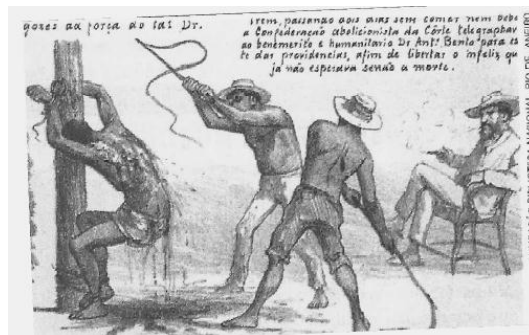 gozes da força do tal Dr.
irem, passando dois dias sem comer nem bebe
a Confederação abolicionista da Côrte telegraphar
ao benemerito e humanitario Dr Antº. Bento para es
te dar providencias, afim de libertar o infeliz, qu
já não esperava senão a morte.
NACIONAL, RIO DE JANEIRO